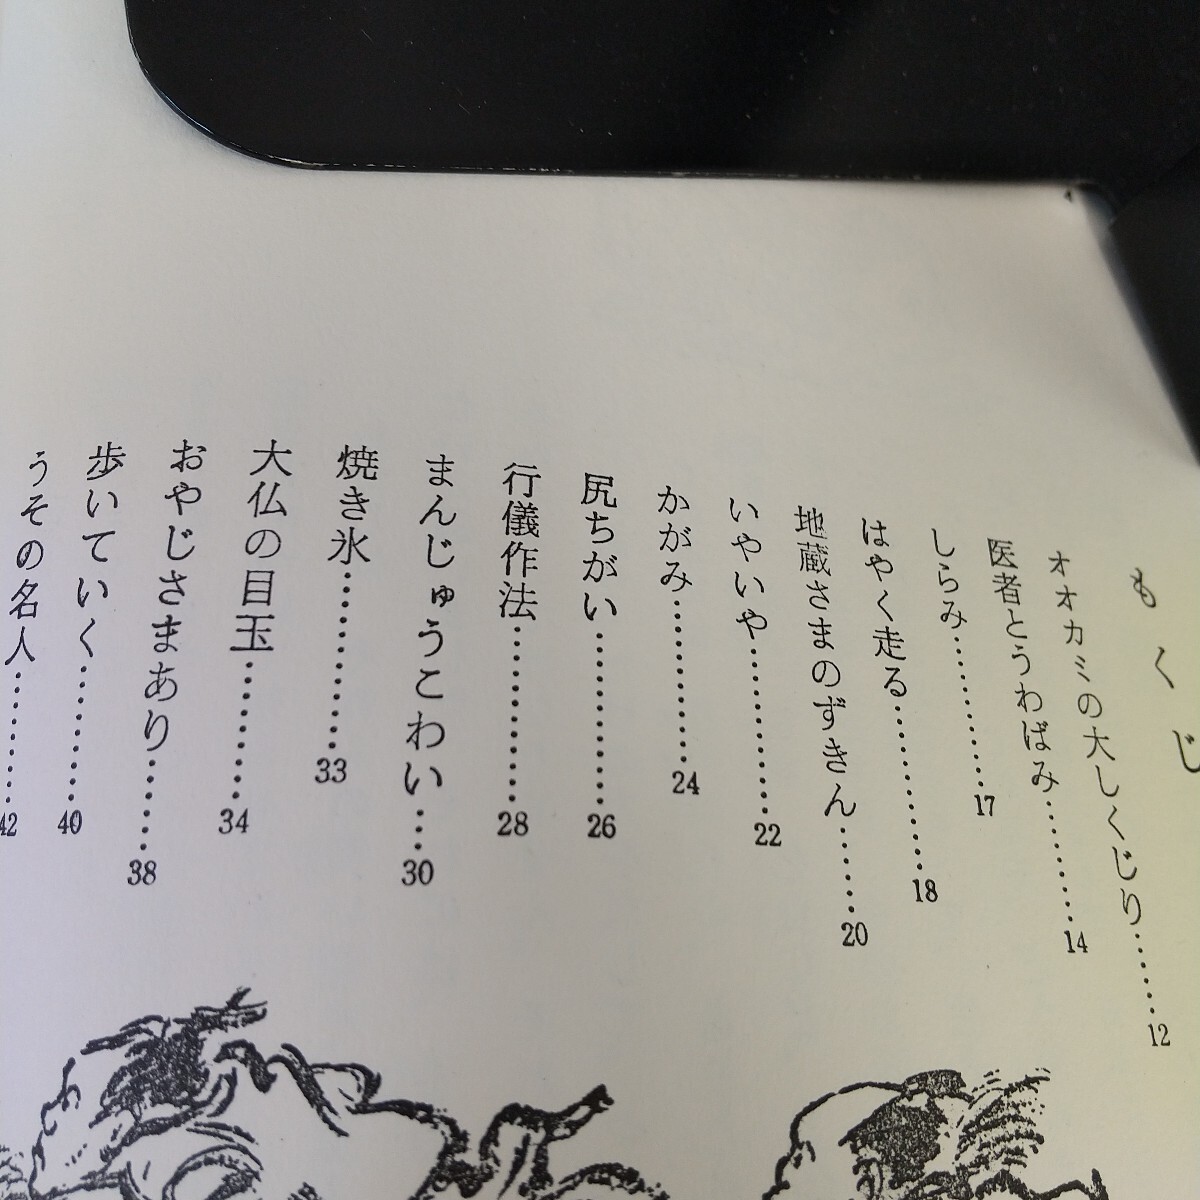 もくじ
オオカミの大しくじり……12
医者とうわばみ……14
しらみ……17
はやく走る……18
地蔵さまのずきん……20
いやいや……22
かがみ……24
尻ちがい……26
行儀作法……28
まんじゅうこわい……30
焼き氷……33
大仏の目玉……34
おやじさまあり……38
歩いていく……40
うその名人……42